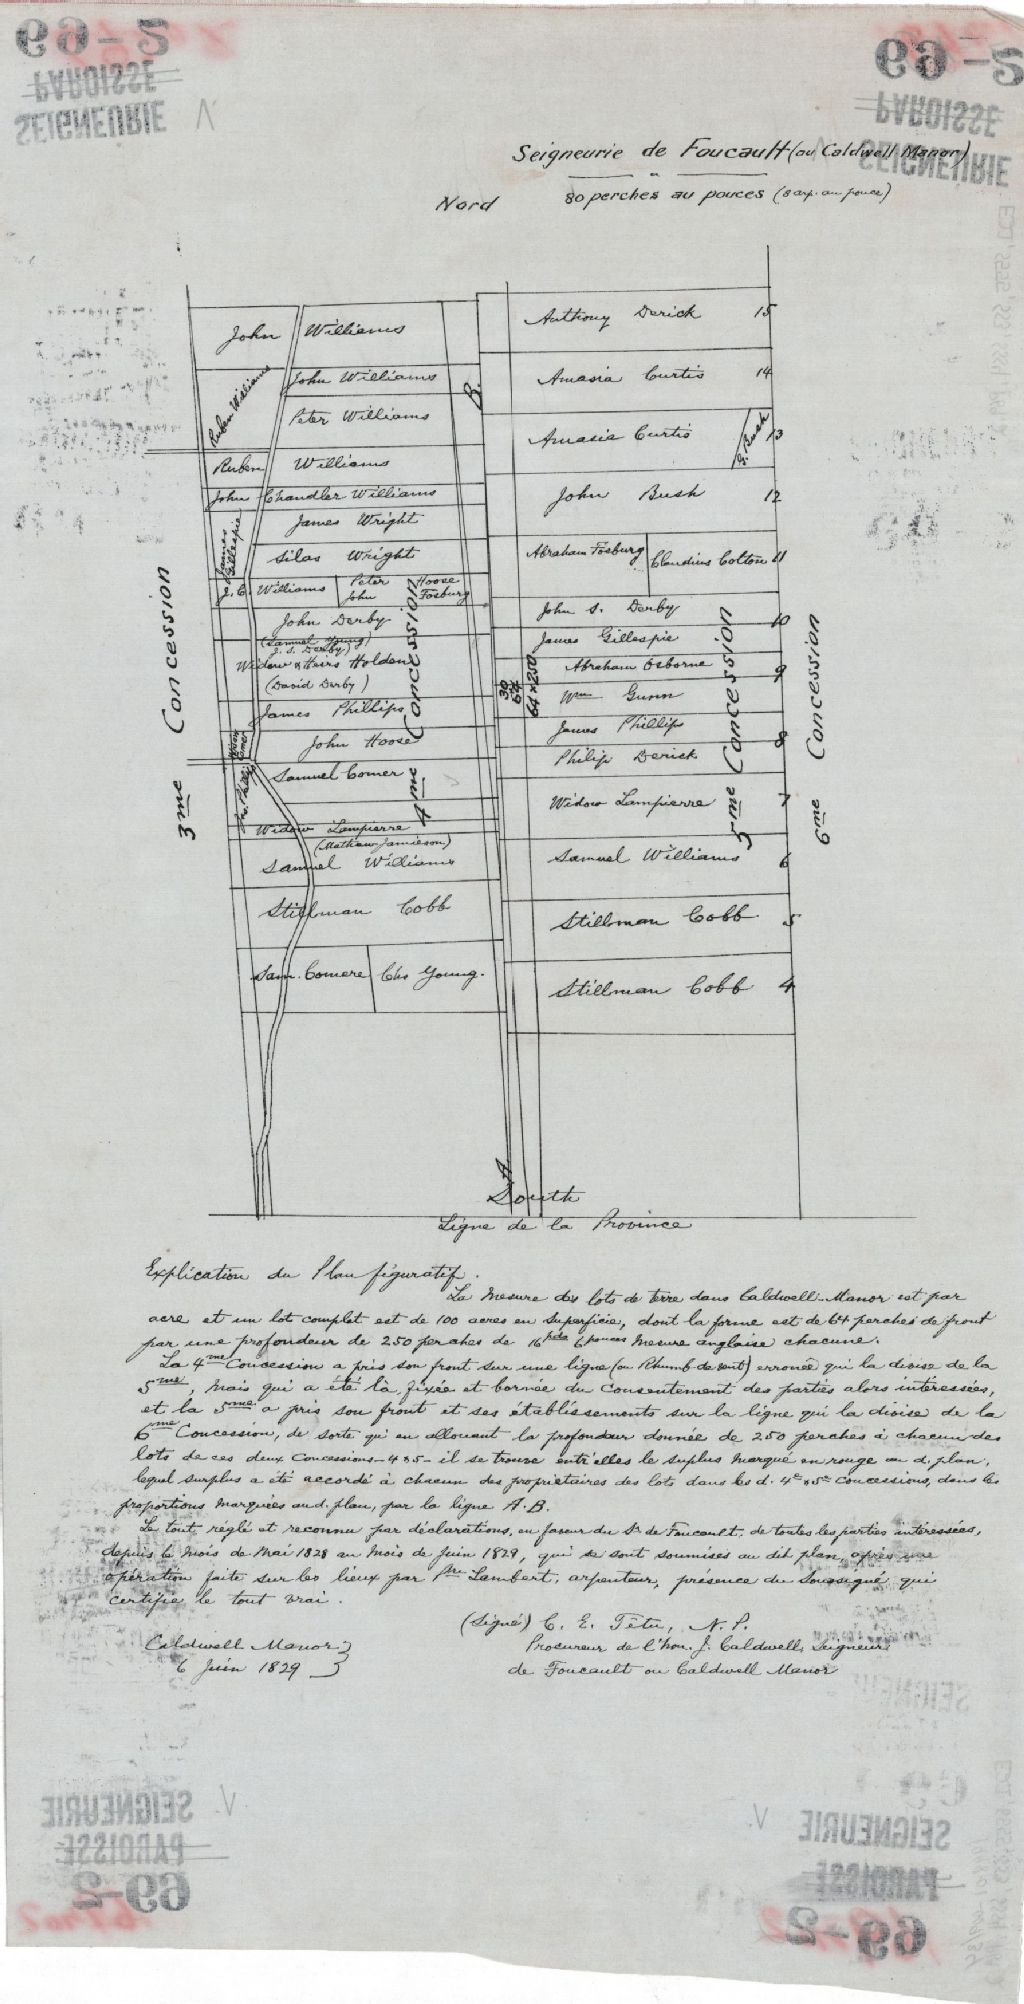 69-2
PAROISSE
SEIGNEURIE
69-2
PAROISSE
SEIGNEURIE
Seigneurie de Foucault (ou Caldwell Manor)
80 perches au pouces (8 arp. au pouce)
Nord
3me Concession
4me Concession
5me Concession
6me Concession
John Williams
Ruben Williams
John Williams
Peter Williams
Ruben Williams
John Chandler Williams
James Wright
James Gillespie
Silas Wright
J. C. Williams
Peter Hoose
John Fosburg
John Derby
(Samuel Young)
J. S. Derby)
Widow & Heirs Holden
(David Derby)
James Phillips
John Hoose
Samuel Comer
Widow Lampierre
(Mathew Jamieson)
Samuel Williams
Stillman Cobb
Sam. Comere
Chs Young.
B.
30
64
64 x 250
Anthony Derick 15
Amasia Curtis 14
Amasia Curtis
G. Bush 13
John Bush 12
Abraham Fosburg
Claudius Colton 11
John S. Derby 10
James Gillespie
Abraham Osborne 9
Wm Gunn
James Phillip 8
Philip Derick
Widow Lampierre 7
Samuel Williams 6
Stillman Cobb 5
Stillman Cobb 4
A
South
Ligne de la Province
Explication du Plan figuratif.
La mesure des lots de terre dans Caldwell-Manor est par
acre et un lot complet est de 100 acres en superficie, dont la forme est de 64 perches de front
par une profondeur de 250 perches de 16 pds 6 pouces mesure anglaise chacune.
La 4me Concession a pris son front sur une ligne (ou Rhumb de vent) erronée qui la divise de la
5me, mais qui a été là fixée et bornée du consentement des parties alors intéressées,
et la 5me a pris son front et ses établissements sur la ligne qui la divise de la
6me Concession, de sorte qu'en allouant la profondeur donnée de 250 perches à chacun des
lots de ces deux Concessions-4 & 5- il se trouve entr'elles le suplus marqué en rouge au d. plan,
lequel surplus a été accordé à chacun des propriétaires des lots dans les d. 4e & 5e concessions, dans les
proportions marquées au d. plan, par la ligne A.B.
Le tout, réglé et reconnu par déclarations, en faveur du Sr de Foucault, de toutes les parties intéressées,
depuis le mois de Mai 1828 au mois de Juin 1829, qui se sont soumises au dit plan, après une
opération faite sur les lieux par Pre Lambert, arpenteur, présence du soussigné qui
certifie le tout vrai.
(Signé) C. E. Têtu, N. P.
Procureur de l'hon. J. Caldwell, Seigneur
de Foucault ou Caldwell Manor
Caldwell Manor
6 Juin 1829
SEIGNEURIE
PAROISSE
69-2
SEIGNEURIE
PAROISSE
69-2